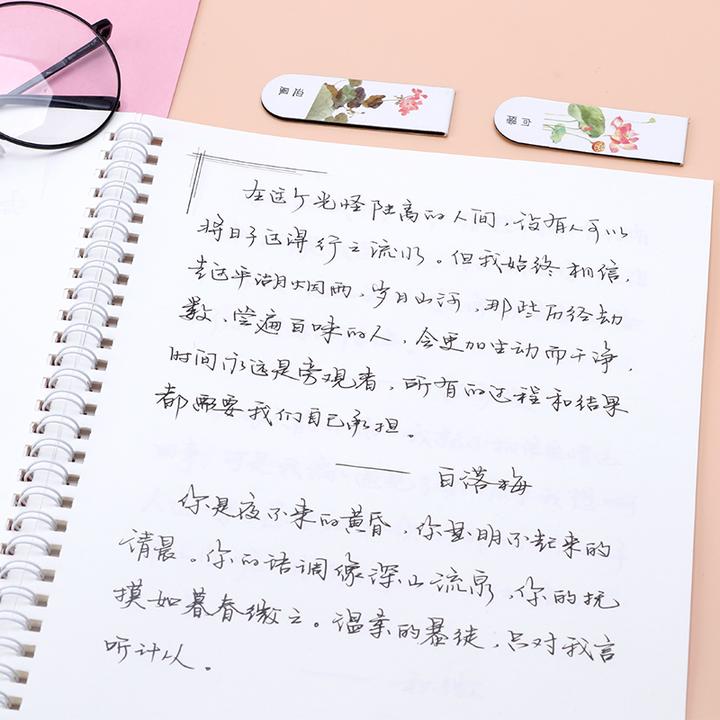 在这个光怪陆离的人间，没有人可以
将日子过得行云流水。但我始终相信，
走过平湖烟雨，岁月山河，那些历经劫
数、尝遍百味的人，会更加生动而干净。
时间永远是旁观者，所有的过程和结果
都需要我们自己承担。
——白落梅
你是夜不来的黄昏，你是明不起来的
清晨。你的语调像深山流泉，你的抚
摸如暮春微云。温柔的暴徒，只对我言
听计从。